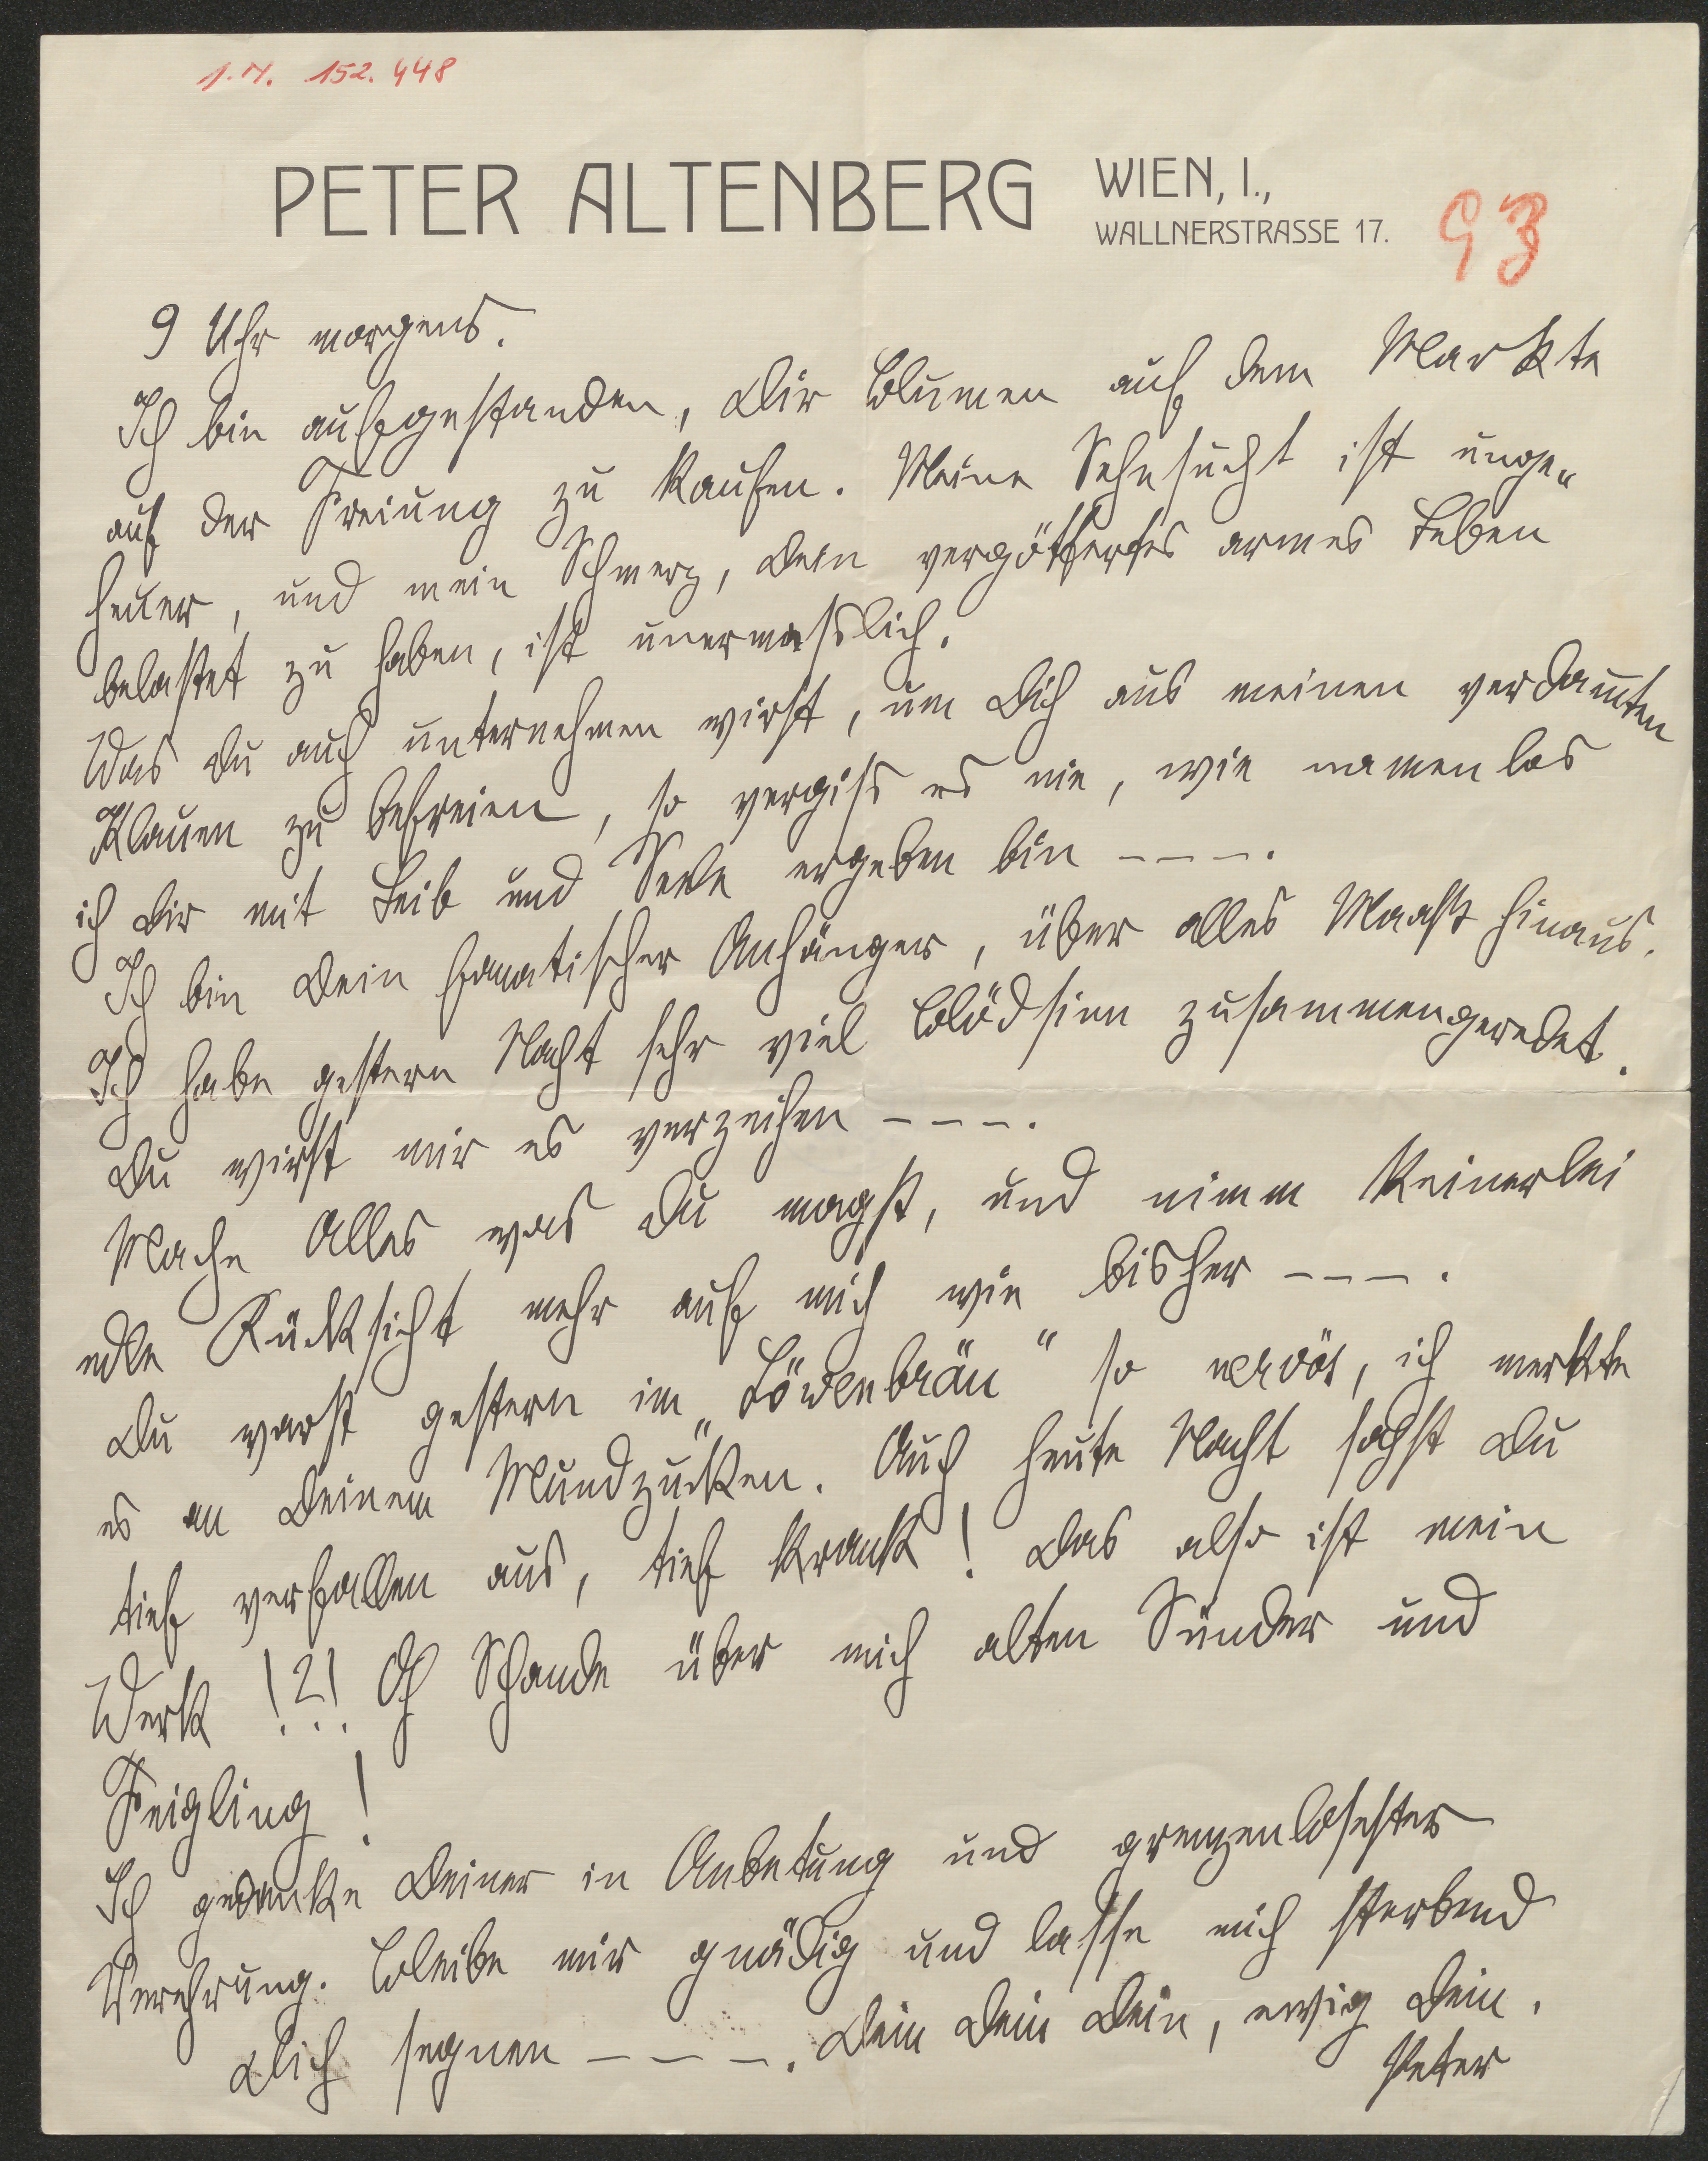 I.N. 152.448
PETER ALTENBERG
WIEN, I.,
WALLNERSTRASSE 17.
93
9 Uhr morgens.
Ich bin aufgestanden, Dir Blumen auf dem Markte
auf der Freiung zu kaufen. Meine Sehnsucht ist unge„
heuer, und mein Schmerz, Dein vergöttertes armes Leben
belastet zu haben, ist unermesslich.
Was Du auch unternehmen wirst, um Dich aus meinen verdam̅ten
Klauen zu befreien, so vergiss es nie, wie namenlos
ich Dir mit Leib und Seele ergeben bin – – – –.
Ich bin Dein fanatischer Anhänger, über alles Maass hinaus.
Ich habe gestern Nacht sehr viel Blödsinn zusammengeredet.
Du wirst mir es verzeihen – – – –.
Mache Alles was Du magst, und nimm keinerlei
edle Rücksicht mehr auf mich wie bisher – – – –.
Du warst gestern im „Löwenbräu“ so nervös, ich merkte
es an Deinem Mundzucken. Auch heute Nacht sahst Du
tief verfallen aus, tief krank! Das also ist mein
Werk !?! Oh Schande über mich alten Sünder und
Feigling!
Ich gedenke Deiner in Anbetung und grenzenlosester
Verehrung. Bleibe mir gnädig und lasse mich sterbend
Dich segnen – – – –. Dein Dein Dein, ewig Dein.
Peter